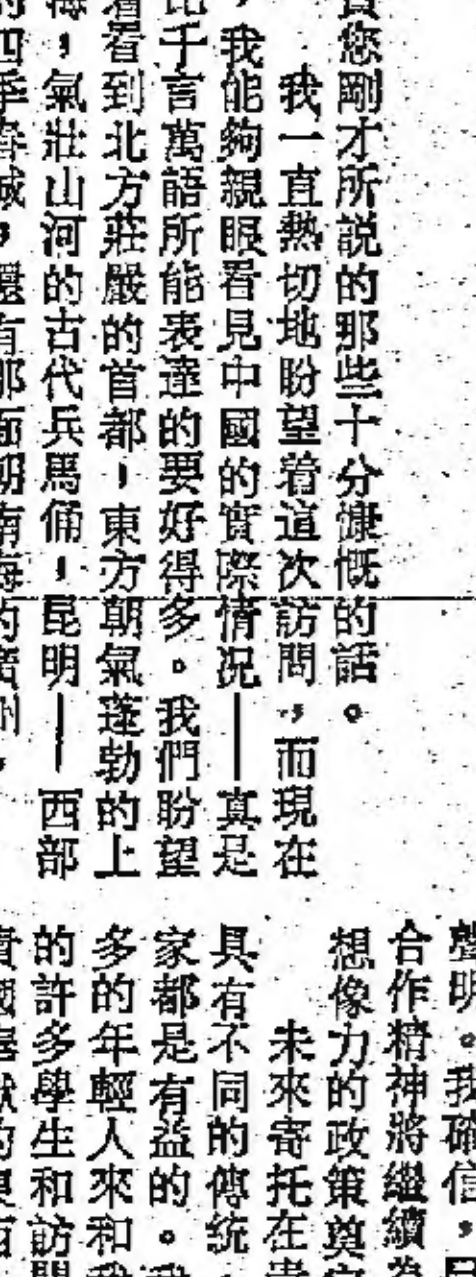 您剛才所説的那些十分慷慨的話。
我一直熱切地盼望着這次訪問，而現在
，我能夠親眼看見中國的實際情況——真是
比千言萬語所能表達的要好得多。我們盼望
着看到北方莊嚴的首都！東方朝氣蓬勃的上
海！氣壯山河的古代兵馬俑！昆明——西部
的四季春城，還有那面朝南海的廣州，
聲明。我確信，
合作精神將繼續為
想像力的政策奠定
未來寄托在
具有不同的傳統，
家都是有益的。我
多的年輕人來和我
的許多學生和訪問